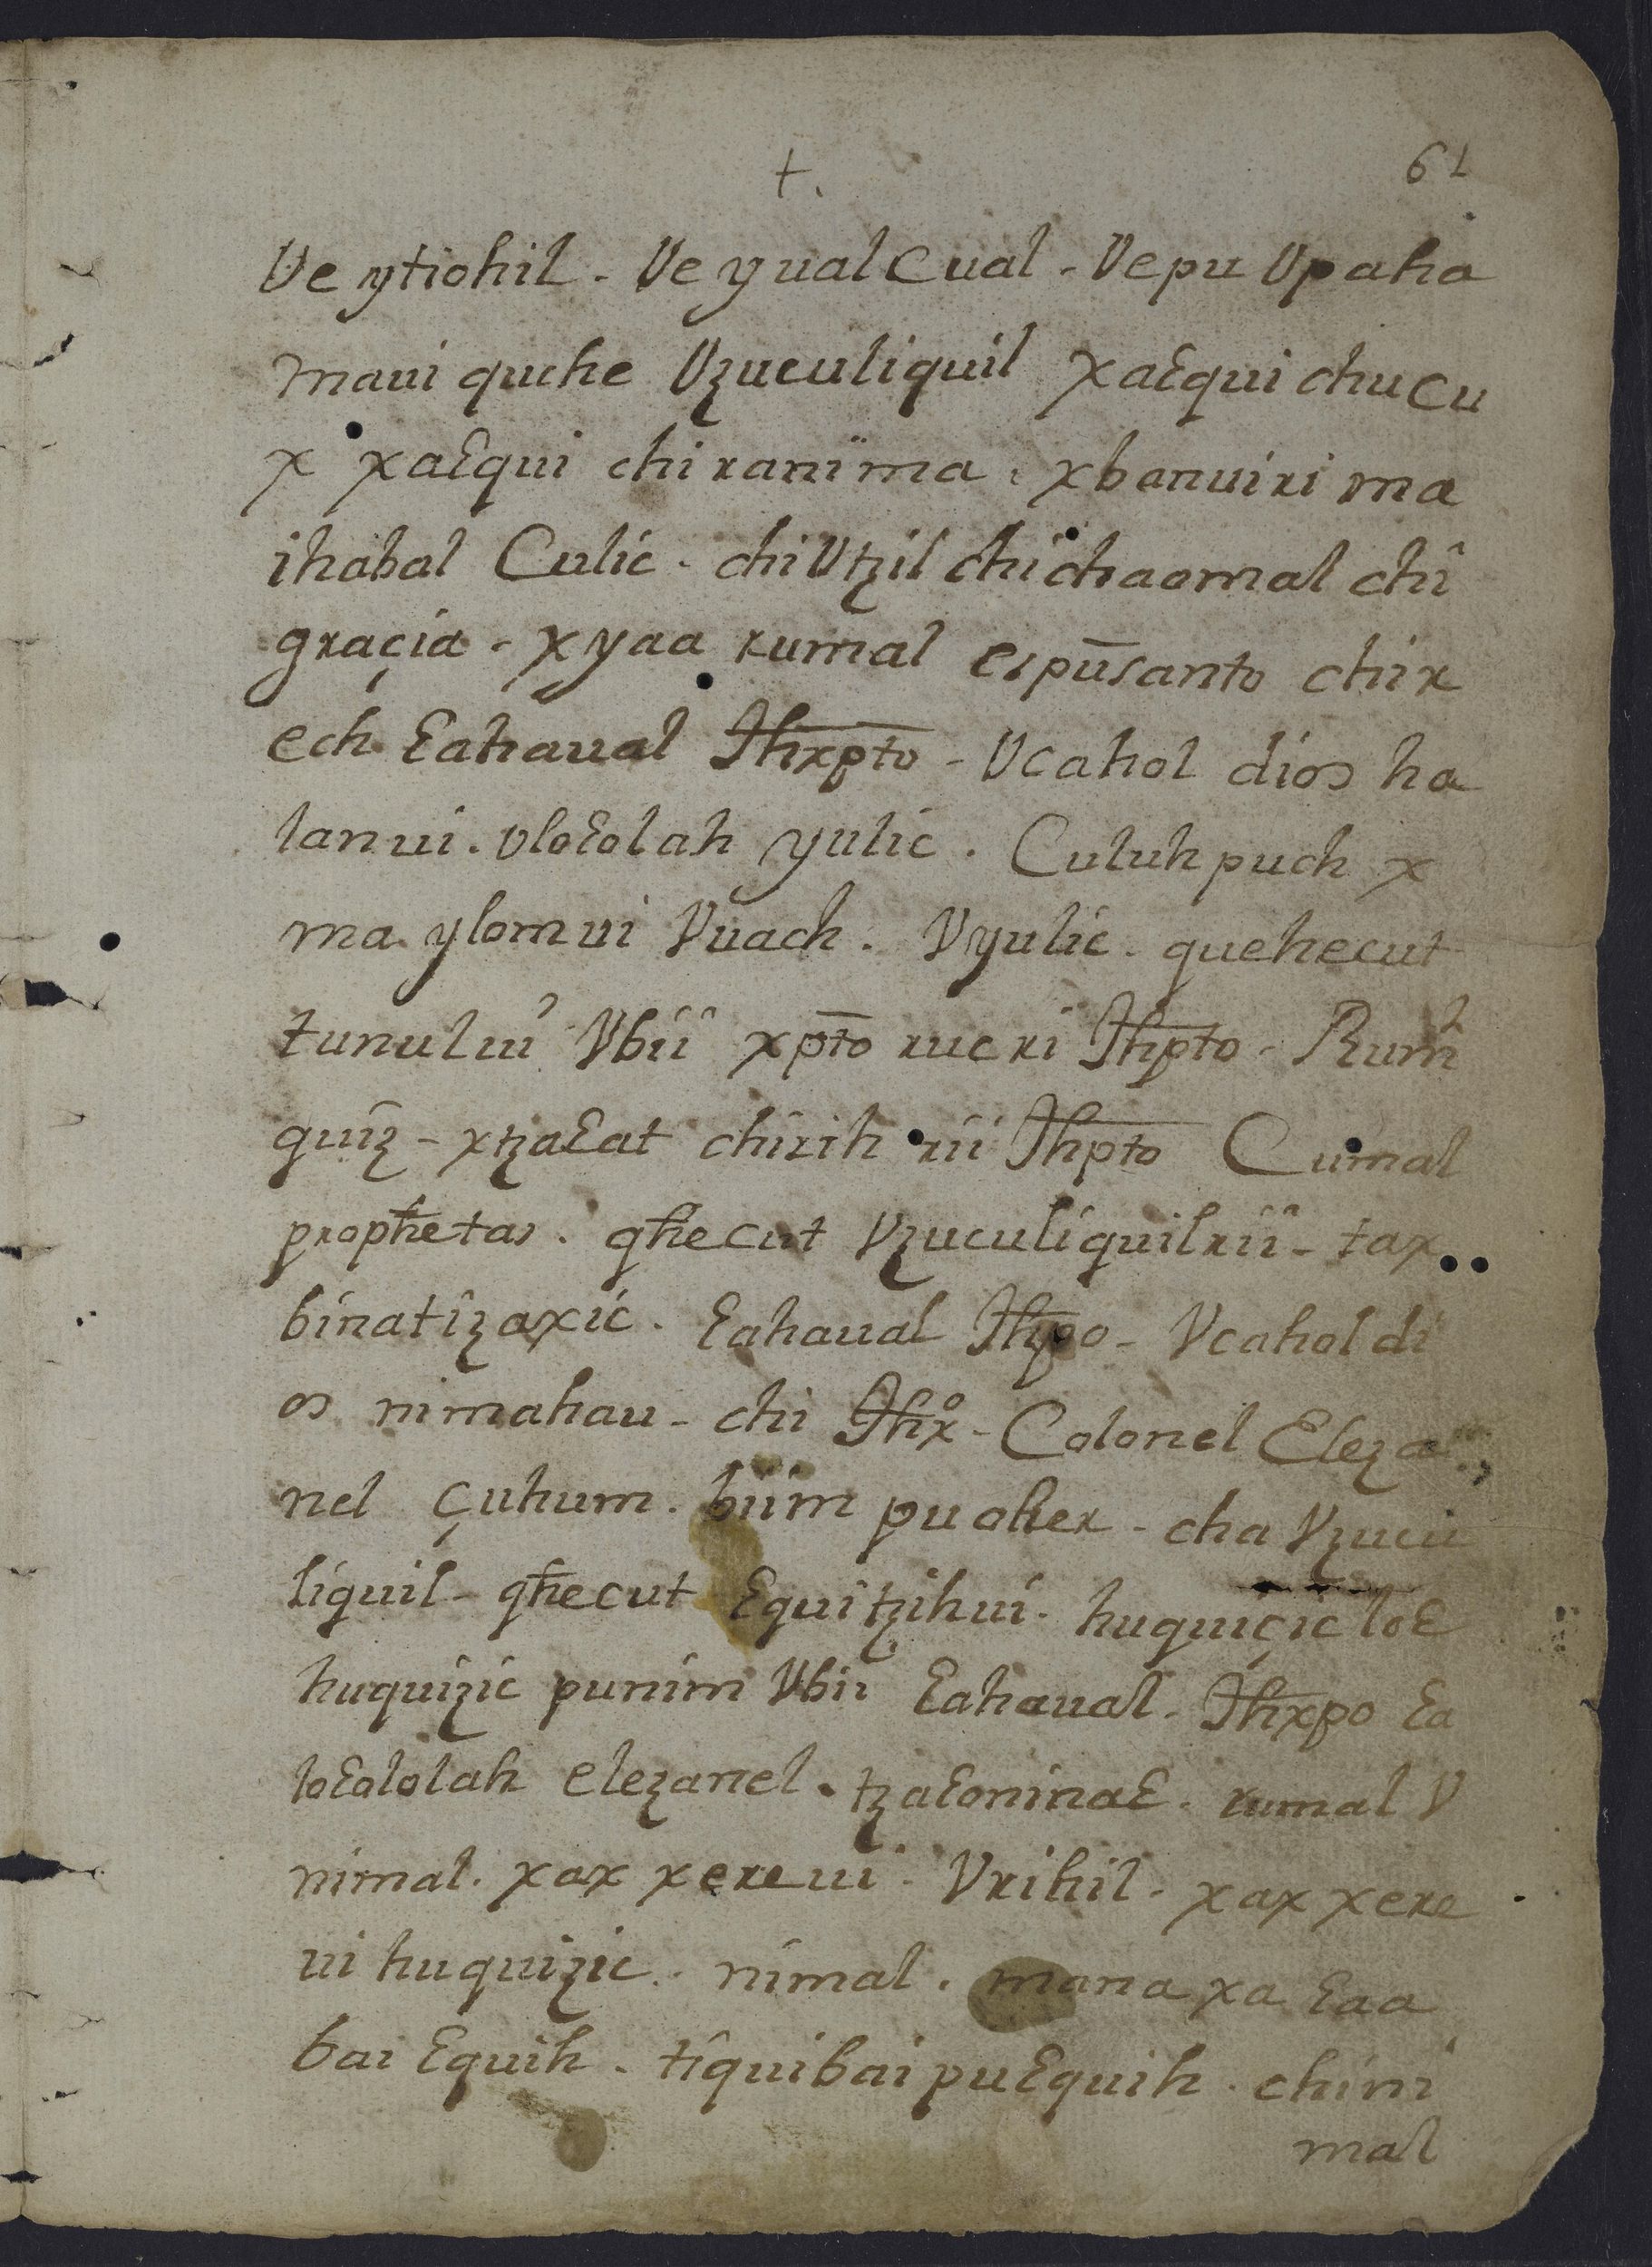 +.
61
Ve ytiohil - Ve y ual Cual - Ve pu Vpaha
maui quehe Vzuculiquil xaɛqui chu cu
x xaɛqui chi ranima, xbanuiri ma
ihabal Culic - chi Vtzil chi chaomal chi
graçia - xyaa rumal espūsanto chir
ech Ɛahaual Jhxp̄to - Vcahol dios ha
lanui. vloɛolah yulic. Culuh puch x
ma ylom ui Vuach. Vyulic - quehecut
tunului Vbii xp̄to ruc ri Jhp̄to - Rum̄
quiz - xtzaɛat chirih rii Jhp̄to Cumal
prophetas. qħecut Vzuculiquil rii - tax
binatizaxic. Ɛahaual Jhpo - Vcahol di
os nimahau - chi Jhxº - Colonel Eleza
nel çuhum. biim puoher - cha Vzucu
liquil - qħecut Ɛquitzihui. huquiçic loɛ
huquizic punim Vbii Ɛahaual - Jhxpo Ɛa
loɛololah elezanel. tzaɛoninaɛ. rumal V
nimal. xax xere ui. Vrihil - xax xere
ui huquizic. nimal. mana xa Ɛaa
bai Ɛquih. tiquibai pu Ɛquih. chi ni
mal